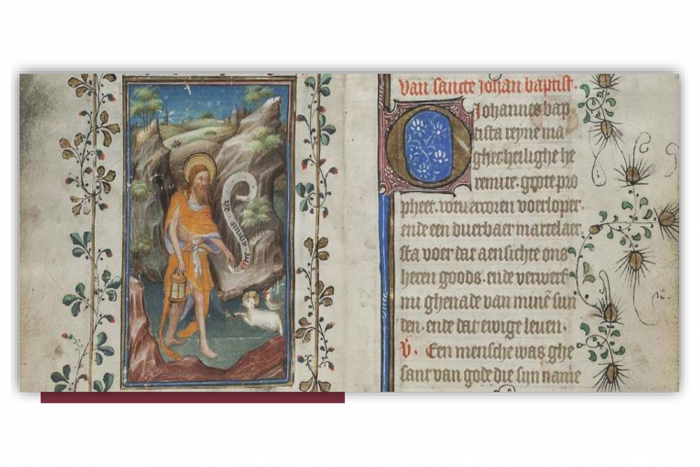 van sancte johan baptist.
O Johannes bap
tista reyne ma
ghet heilighe he
remite. grote pro
pheet. wtuercoren voerloper.
ende een duerbaer martelaer
sta voer dat aensichte ons
heren goods. ende verwerf
mi ghenade van minē sun
den. ende dat ewige leuen.
V. Een mensche was ghe
sant van gode die sijn name